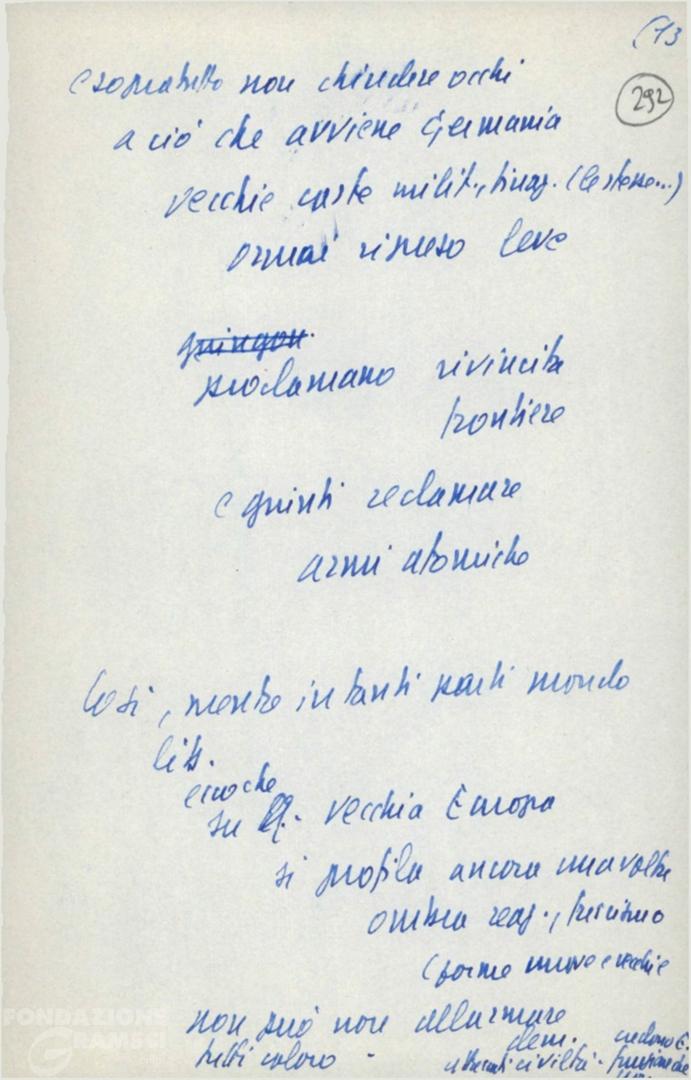 (13
292
e sopratutto non chiudere occhi
a ciò che avviene Germania
vecchie caste milit., finaz. (le stesse...)
ormai ripreso leve
proclamano rivincita
frontiere
e quindi reclamare
armi atomiche
Così, mentre in tanti parti mondo
lib.
ecco che
su vecchia Europa
si profila ancora una volta
ombra reaz., fascismo
(forme nuove e vecchie
non può non allarmare
tutti coloro -
dem.
civiltà -
credono
FONDAZIONE
GRAMSCI